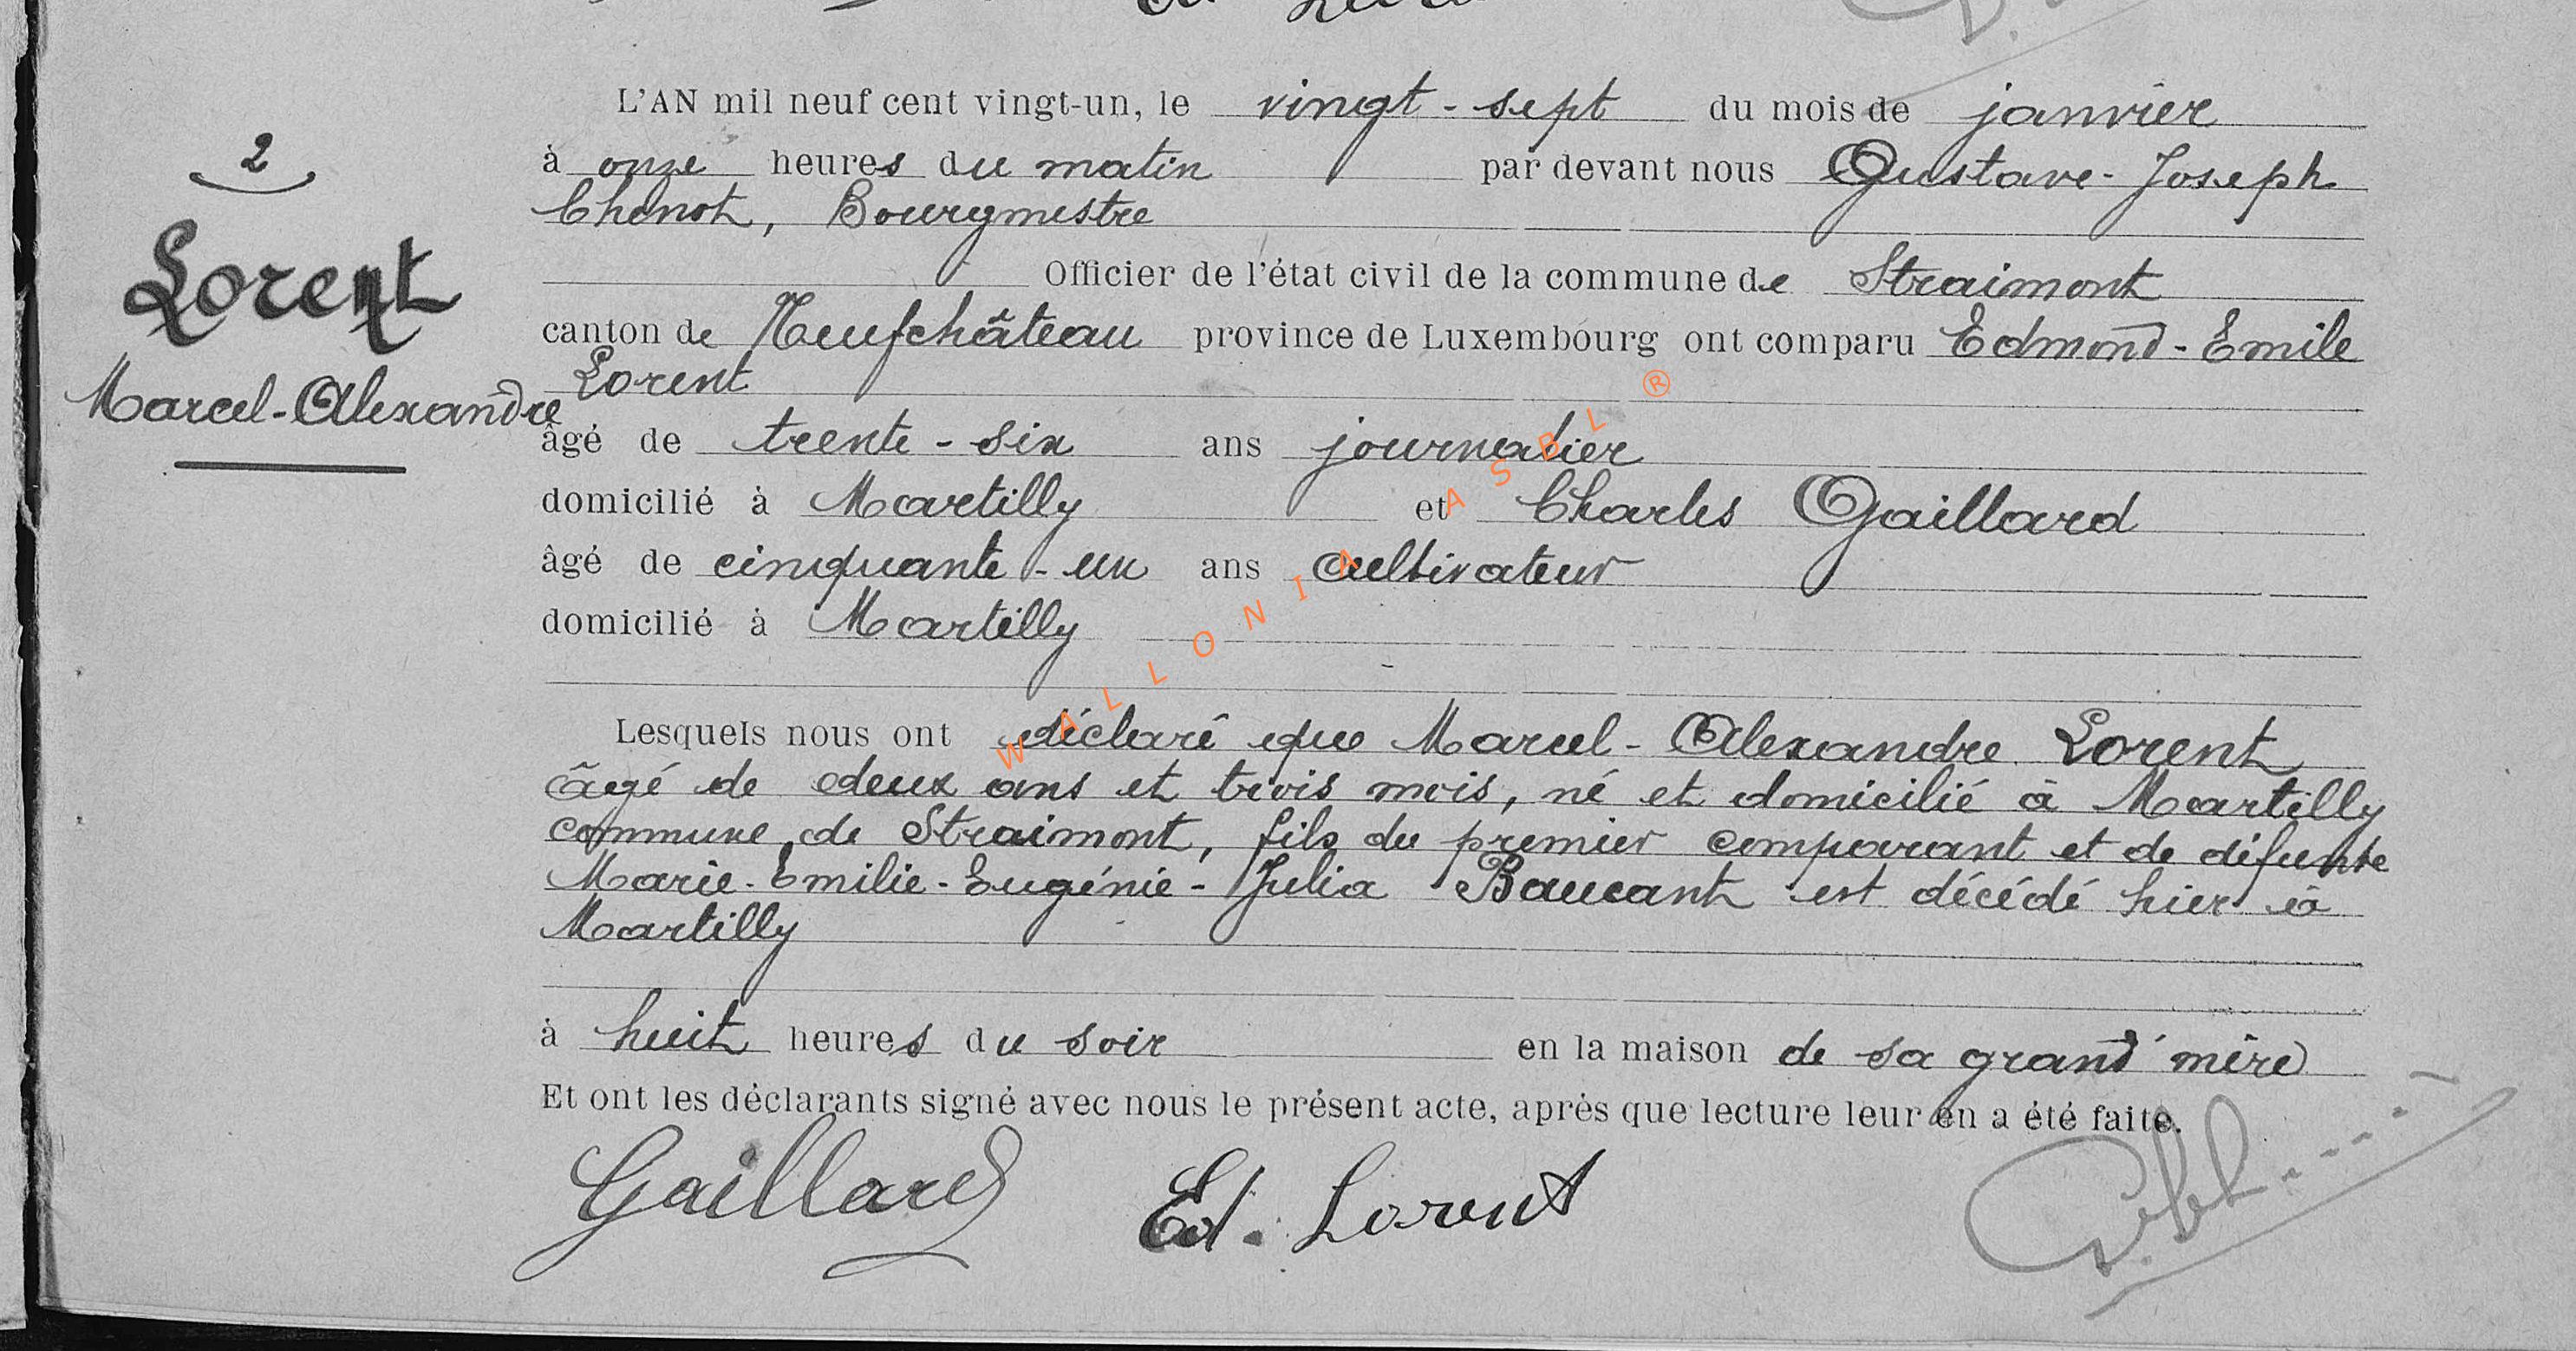 2
Lorent
Marcel-Alexandre
L'AN mil neuf cent vingt-un, le vingt-sept du mois de janvier
à onze heures du matin par devant nous Gustave-Joseph
Chenot, Bourgmestre
Officier de l'état civil de la commune de Straimont
canton de Neufchâteau province de Luxembourg ont comparu Edmond-Emile
Lorent
âgé de trente-six ans journalier
domicilié à Martilly et Charles Gaillard
âgé de cinquante-un ans cultivateur
domicilié à Martilly
Lesquels nous ont déclaré que Marcel-Alexandre Lorent
âgé de deux ans et trois mois, né et domicilié à Martilly
commune de Straimont, fils du premier comparant et de défunte
Marie-Emilie-Eugénie-Julia Baucant est décédé hier à
Martilly
à huit heures du soir en la maison de sa grand'mère
Et ont les déclarants signé avec nous le présent acte, après que lecture leur en a été faite.
Gaillard Ed. Lorent
WALLONIA ASBL ®